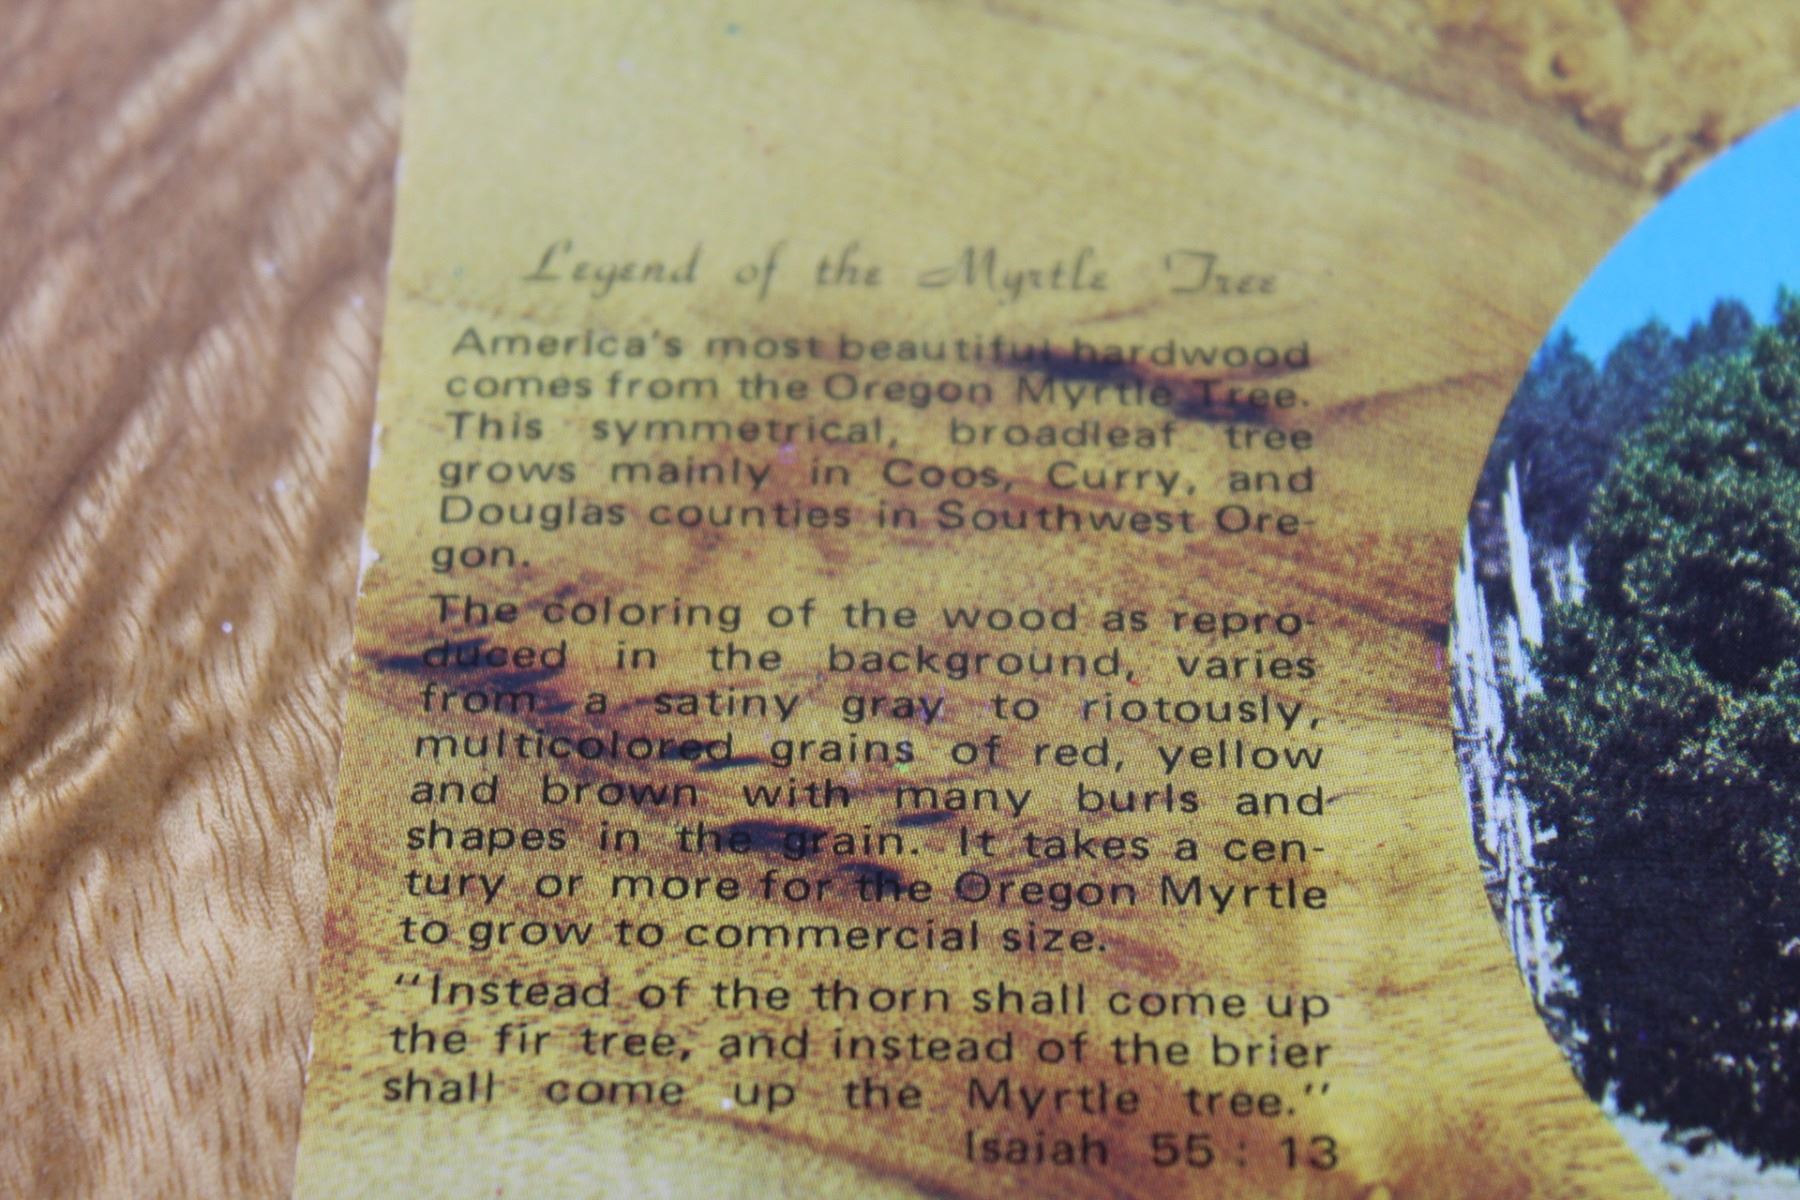 Legend of the Myrtle Tree
America's most beautiful hardwood
comes from the Oregon Myrtle Tree.
This symmetrical, broadleaf tree
grows mainly in Coos, Curry, and
Douglas counties in Southwest Ore-
gon.
The coloring of the wood as repro-
duced in the background, varies
from a satiny gray to riotously,
multicolored grains of red, yellow
and brown with many burls and
shapes in the grain. It takes a cen-
tury or more for the Oregon Myrtle
to grow to commercial size.
"Instead of the thorn shall come up
the fir tree, and instead of the brier
shall come up the Myrtle tree."
Isaiah 55 : 13